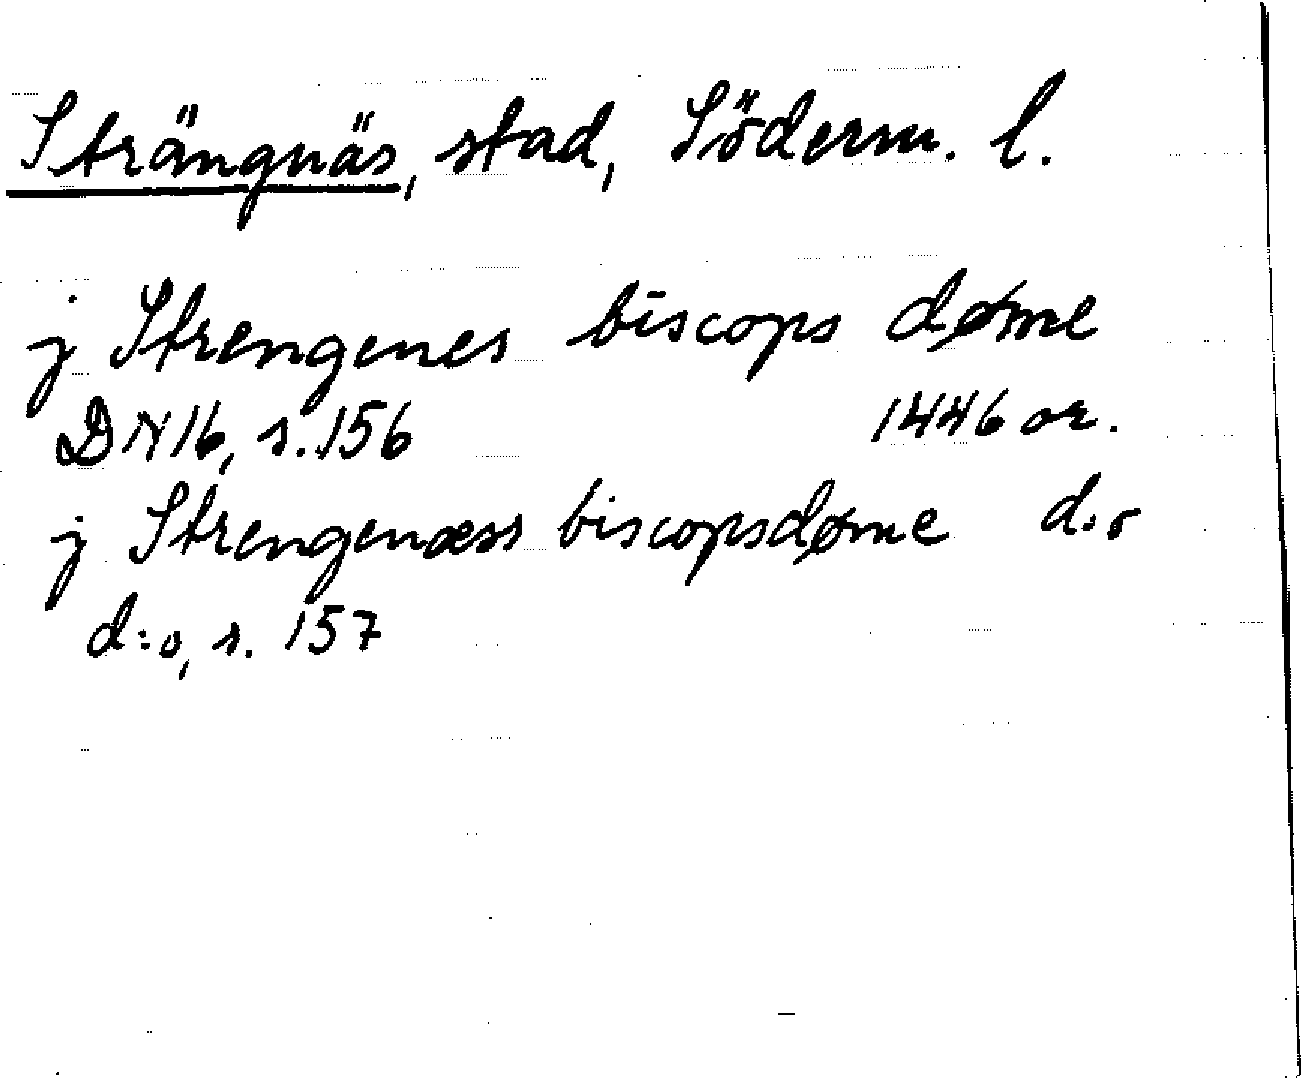 Strängnäs, stad, Söderm. l.
j Strengenes biscops døme
DN 16, s. 156 1446 or.
j Strengenæss biscopsdøme d:o
d:o, s. 157